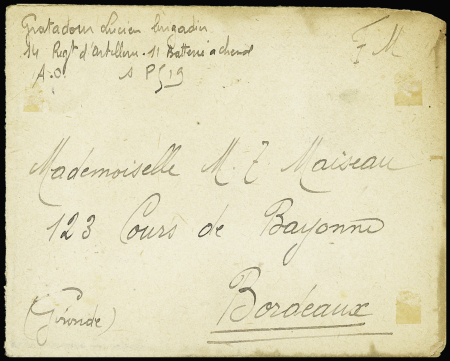 Gratadour Lucien brigadier
14 Regt d'artillerie. 11 Batterie à cheval
A. O. S P 519
F M
Mademoiselle M. T Maiseau
123 Cours de Bayonne
Bordeaux
(Gironde)